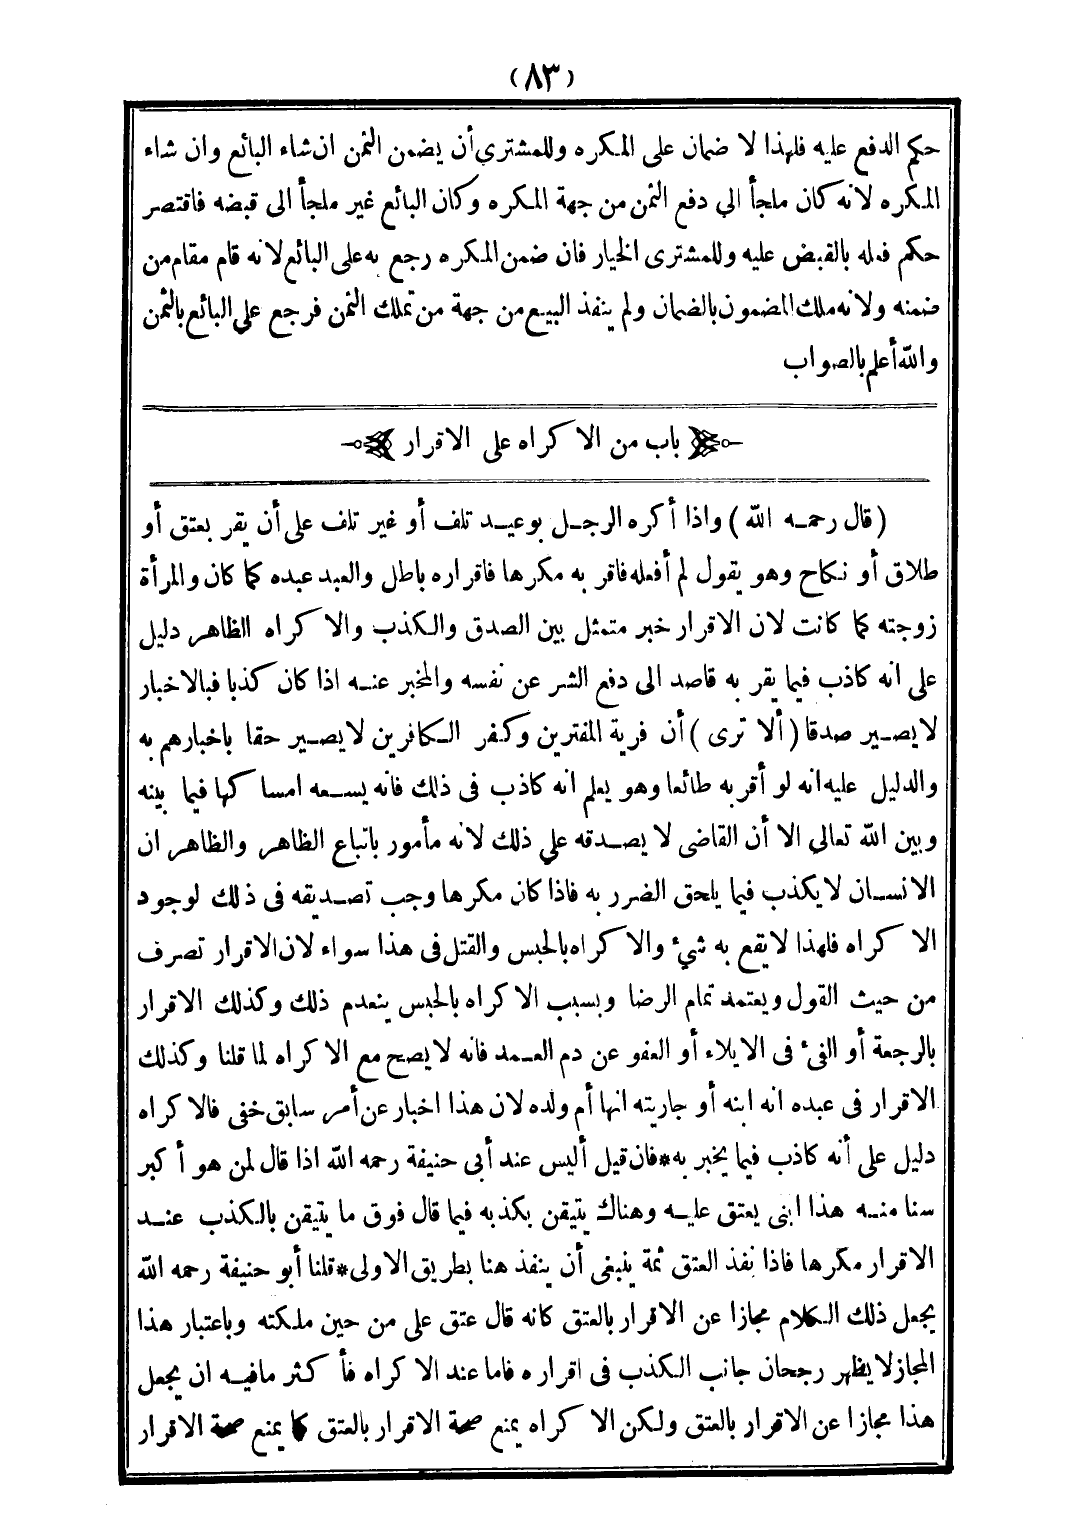 (٨٣)
حكم الدفع عليه فلهذا لا ضمان على المكره وللمشتري أن يضمن الثمن ان شاء البائع وان شاء
المكره لانه كان ملجأ الي دفع الثمن من جهة المكره وكان البائع غير ملجأ الى قبضه فاقتصر
حكم فعله بالقبض عليه وللمشترى الخيار فان ضمن المكره رجع به على البائع لانه قام مقام من
ضمنه ولانه ملك المضمون بالضمان ولم ينفذ البيع من جهة من تملك الثمن فرجع علي البائع بالثمن
والله أعلم بالصواب
باب من الاكراه على الاقرار
(قال رحمه الله) واذا أكره الرجل بوعيد تلف أو غير تلف على أن يقر بعتق أو
طلاق أو نكاح وهو يقول لم أفعله فاقر به مكرها فاقراره باطل والعبد عبده كما كان والمرأة
زوجته كما كانت لان الاقرار خبر متمثل بين الصدق والكذب والاكراه الظاهر دليل
على انه كاذب فيما يقر به قاصد الى دفع الشر عن نفسه والمخبر عنه اذا كان كذبا فبالاخبار
لا يصير صدقا (ألا ترى) أن فرية المفترين وكفر الكافرين لا يصير حقا باخبارهم به
والدليل عليه انه لو أقر به طائعا وهو يعلم انه كاذب فى ذلك فانه يسعه امساكها فيما بينه
وبين الله تعالي الا أن القاضى لا يصدقه علي ذلك لانه مأمور باتباع الظاهر والظاهر ان
الانسان لا يكذب فيما يلحق الضرر به فاذا كان مكرها وجب تصديقه فى ذلك لوجود
الاكراه فلهذا لا يقع به شيء والاكراه بالحبس والقتل فى هذا سواء لان الاقرار تصرف
من حيث القول ويعتمد تمام الرضا وبسبب الاكراه بالحبس ينعدم ذلك وكذلك الاقرار
بالرجعة أو الفيء فى الايلاء أو العفو عن دم العمد فانه لا يصح مع الاكراه لما قلنا وكذلك
الاقرار فى عبده انه ابنه أو جاريته انها أم ولده لان هذا اخبار عن أمر سابق خفى فالاكراه
دليل على أنه كاذب فيما يخبر به*فان قيل أليس عند أبى حنيفة رحمه الله اذا قال لمن هو أكبر
سنا منه هذا ابنى يعتق عليه وهناك يتيقن بكذبه فيما قال فوق ما يتيقن بالكذب عند
الاقرار مكرها فاذا نفذ العتق ثمة ينبغى أن ينفذ هنا بطريق الاولى*قلنا أبو حنيفة رحمه الله
يجعل ذلك الكلام مجازا عن الاقرار بالعتق كانه قال عتق على من حين ملكته وباعتبار هذا
المجاز لا يظهر رجحان جانب الكذب فى اقراره فاما عند الاكراه فأكثر مافيه ان يجعل
هذا مجازا عن الاقرار بالعتق ولكن الاكراه يمنع صحة الاقرار بالعتق كما يمنع صحة الاقرار